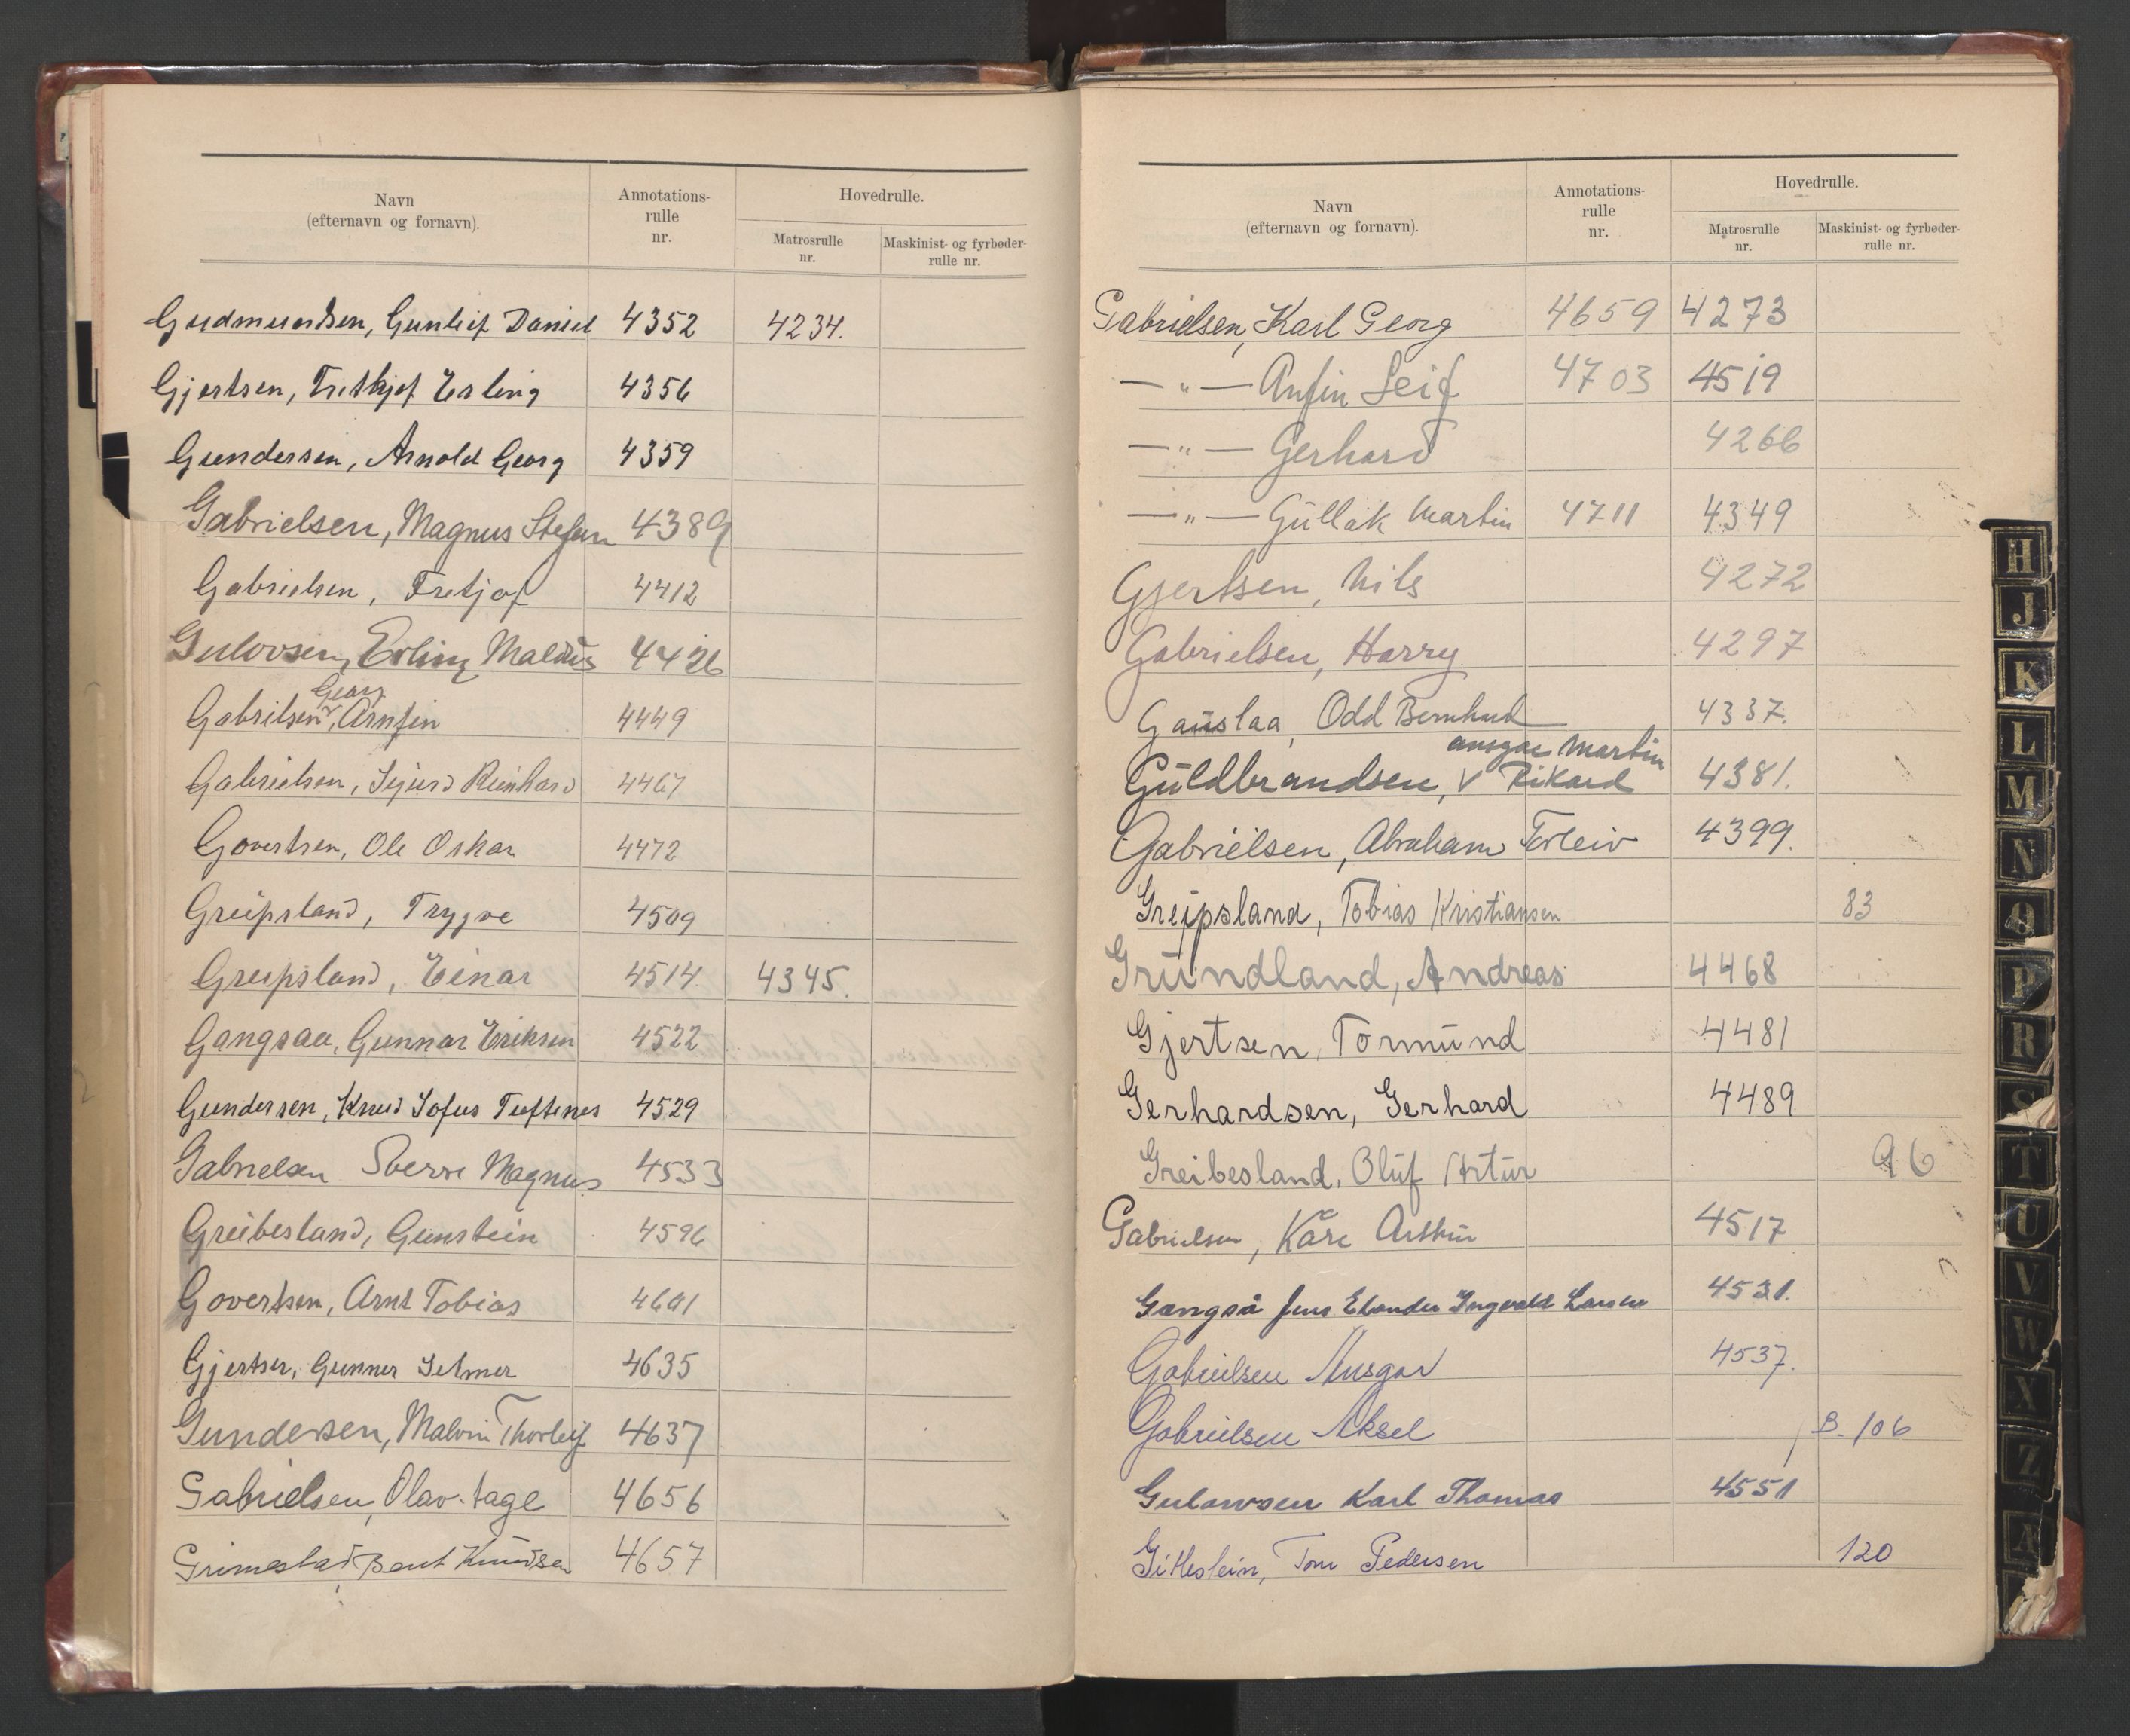 Navn
(efternavn og fornavn).
Annotations-
rulle
nr.
Hovedrulle.
Matrosrulle
nr.
Maskinist- og fyrbøder-
rulle nr.
Gudmundsen, Gunleif Daniel 4352 4234.
Gjertsen, Frithjof Erling 4356
Gundersen, Arnold Georg 4359
Gabrielsen, Magnus Stefan 4389
Gabrielsen, Fretjof 4412
Gulovsen, Erling Maldus 4426
Georg
Gabrilsen, Arnfin 4449
Gabrielsen, Sigurd Reinhard 4467
Govertsen, Ole Oskar 4472
Greipsland, Trygve 4509
Greipsland, Einar 4514 4345.
Gangsaa, Gunnar Eriksen 4522
Gundersen, Knud Sofus Tuftenes 4529
Gabrielsen Sverre Magnus 4533
Greibesland, Gunstein 4596
Govertsen, Arnt Tobias 4601
Gjertsen, Gunner Selmer 4635
Gundersen, Malvin Thorleif 4637
Gabrielsen, Olav Aage 4656
Grimestad, Bent Knudsen 4657
Navn
(efternavn og fornavn).
Annotations-
rulle
nr.
Hovedrulle.
Matrosrulle
nr.
Maskinist- og fyrbøder-
rulle nr.
Gabrielsen, Karl Georg 4659 4273
— " — Anfin Leif 4703 4519
— " — Gerhard 4266
— " — Gullak Martin 4711 4349
Gjertsen, Nils 4272
Gabrielsen, Harry 4297
Gauslaa, Odd Bernhard 4337.
ansgar Martin
Guldbrandsen, V Rikard 4381.
Gabrielsen, Abraham Torleiv 4399.
Greipsland, Tobias Kristiansen 83
Grundland, Andreas 4468
Gjertsen, Tormund 4481
Gerhardsen, Gerhard 4489
Greibesland, Oluf Artur 96
Gabrielsen, Kåre Arthur 4517
Gangså Jens Elander Ingvald Larsen 4531.
Gabrielsen Ansgar 4537.
Gabrielsen Aksel B. 106
Gulowsen Karl Thomas 4551
Gitlestein, Tom Pedersen 120
H
J
K
L
M
N
O
P
R
S
T
U
V
W
X
Z